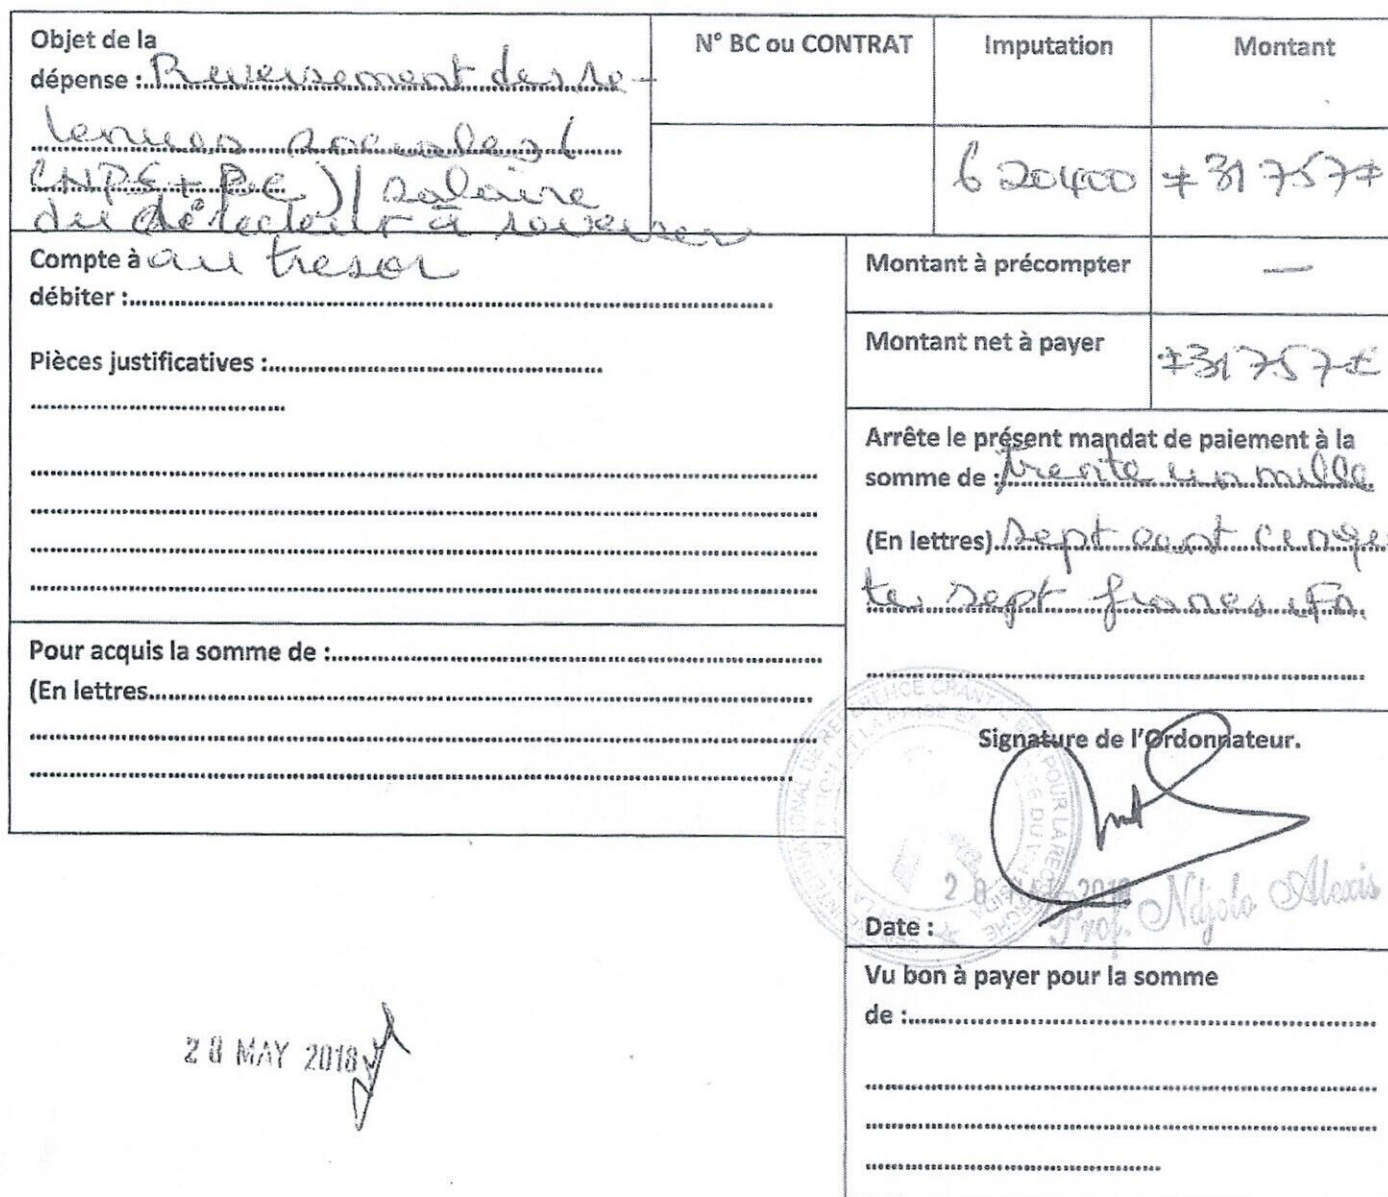 Objet de la
dépense : Reversement des re-
tenues sociales (
CNPS + PC )/ salaire
du
à
au tresor
N° BC ou CONTRAT
Imputation
Montant
620400
≠31 757≠
Compte à
débiter :
Pièces justificatives :
Montant à précompter
—
Montant net à payer
≠31757≠
Arrête le présent mandat de paiement à la
somme de : trente un mille
(En lettres) sept cent
te sept francs
Pour acquis la somme de :
(En lettres
Signature de l'Ordonnateur.
2018
Prof. Ndjolo Alexis
Date :
Vu bon à payer pour la somme
de :
28 MAY 2018